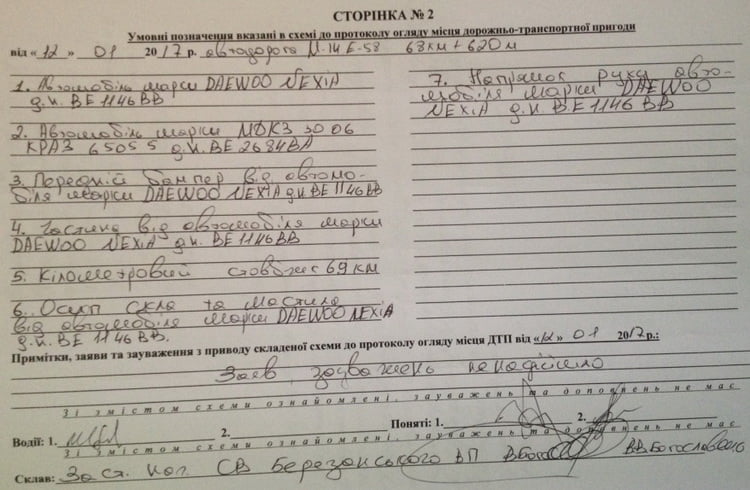 СТОРІНКА № 2
Умовні позначення вказані в схемі до протоколу огляду місця дорожньо-транспортної пригоди
від «12» 01 2017 р. автодорога М-14 Е-58 68 км + 620 м
1. Автомобіль марки DAEWOO NEXIA
д.н. ВЕ 1146 ВВ
2. Автомобіль марки МДКЗ 3006
КРАЗ 65055 д.н. ВЕ 2684 ВА
3. Передній бампер від автомо-
біля марки DAEWOO NEXIA д.н. ВЕ 1146 ВВ
4. Частина від автомобіля марки
DAEWOO NEXIA д.н. ВЕ 1146 ВВ
5. Кілометровий стовбчик 69 км
6. Осип скла та мастила
від автомобіля марки DAEWOO NEXIA
д.н. ВЕ 1146 ВВ.
7. Напрямок руху авто-
мобіля марки DAEWOO
NEXIA д.н. ВЕ 1146 ВВ
Примітки, заяви та зауваження з приводу складеної схеми до протоколу огляду місця ДТП від «12» 01 2017 р.:
Заяв, зауважень ненадійшло
Зі змістом схеми ознайомлені, зауважень та доповнень не має
Водії: 1. 2. Поняті: 1. 2.
Зі змістом схеми ознайомлені, зауважень та доповнень не має
Склав: Заст. нач. СВ Березанського ВП В.В.Богославенко